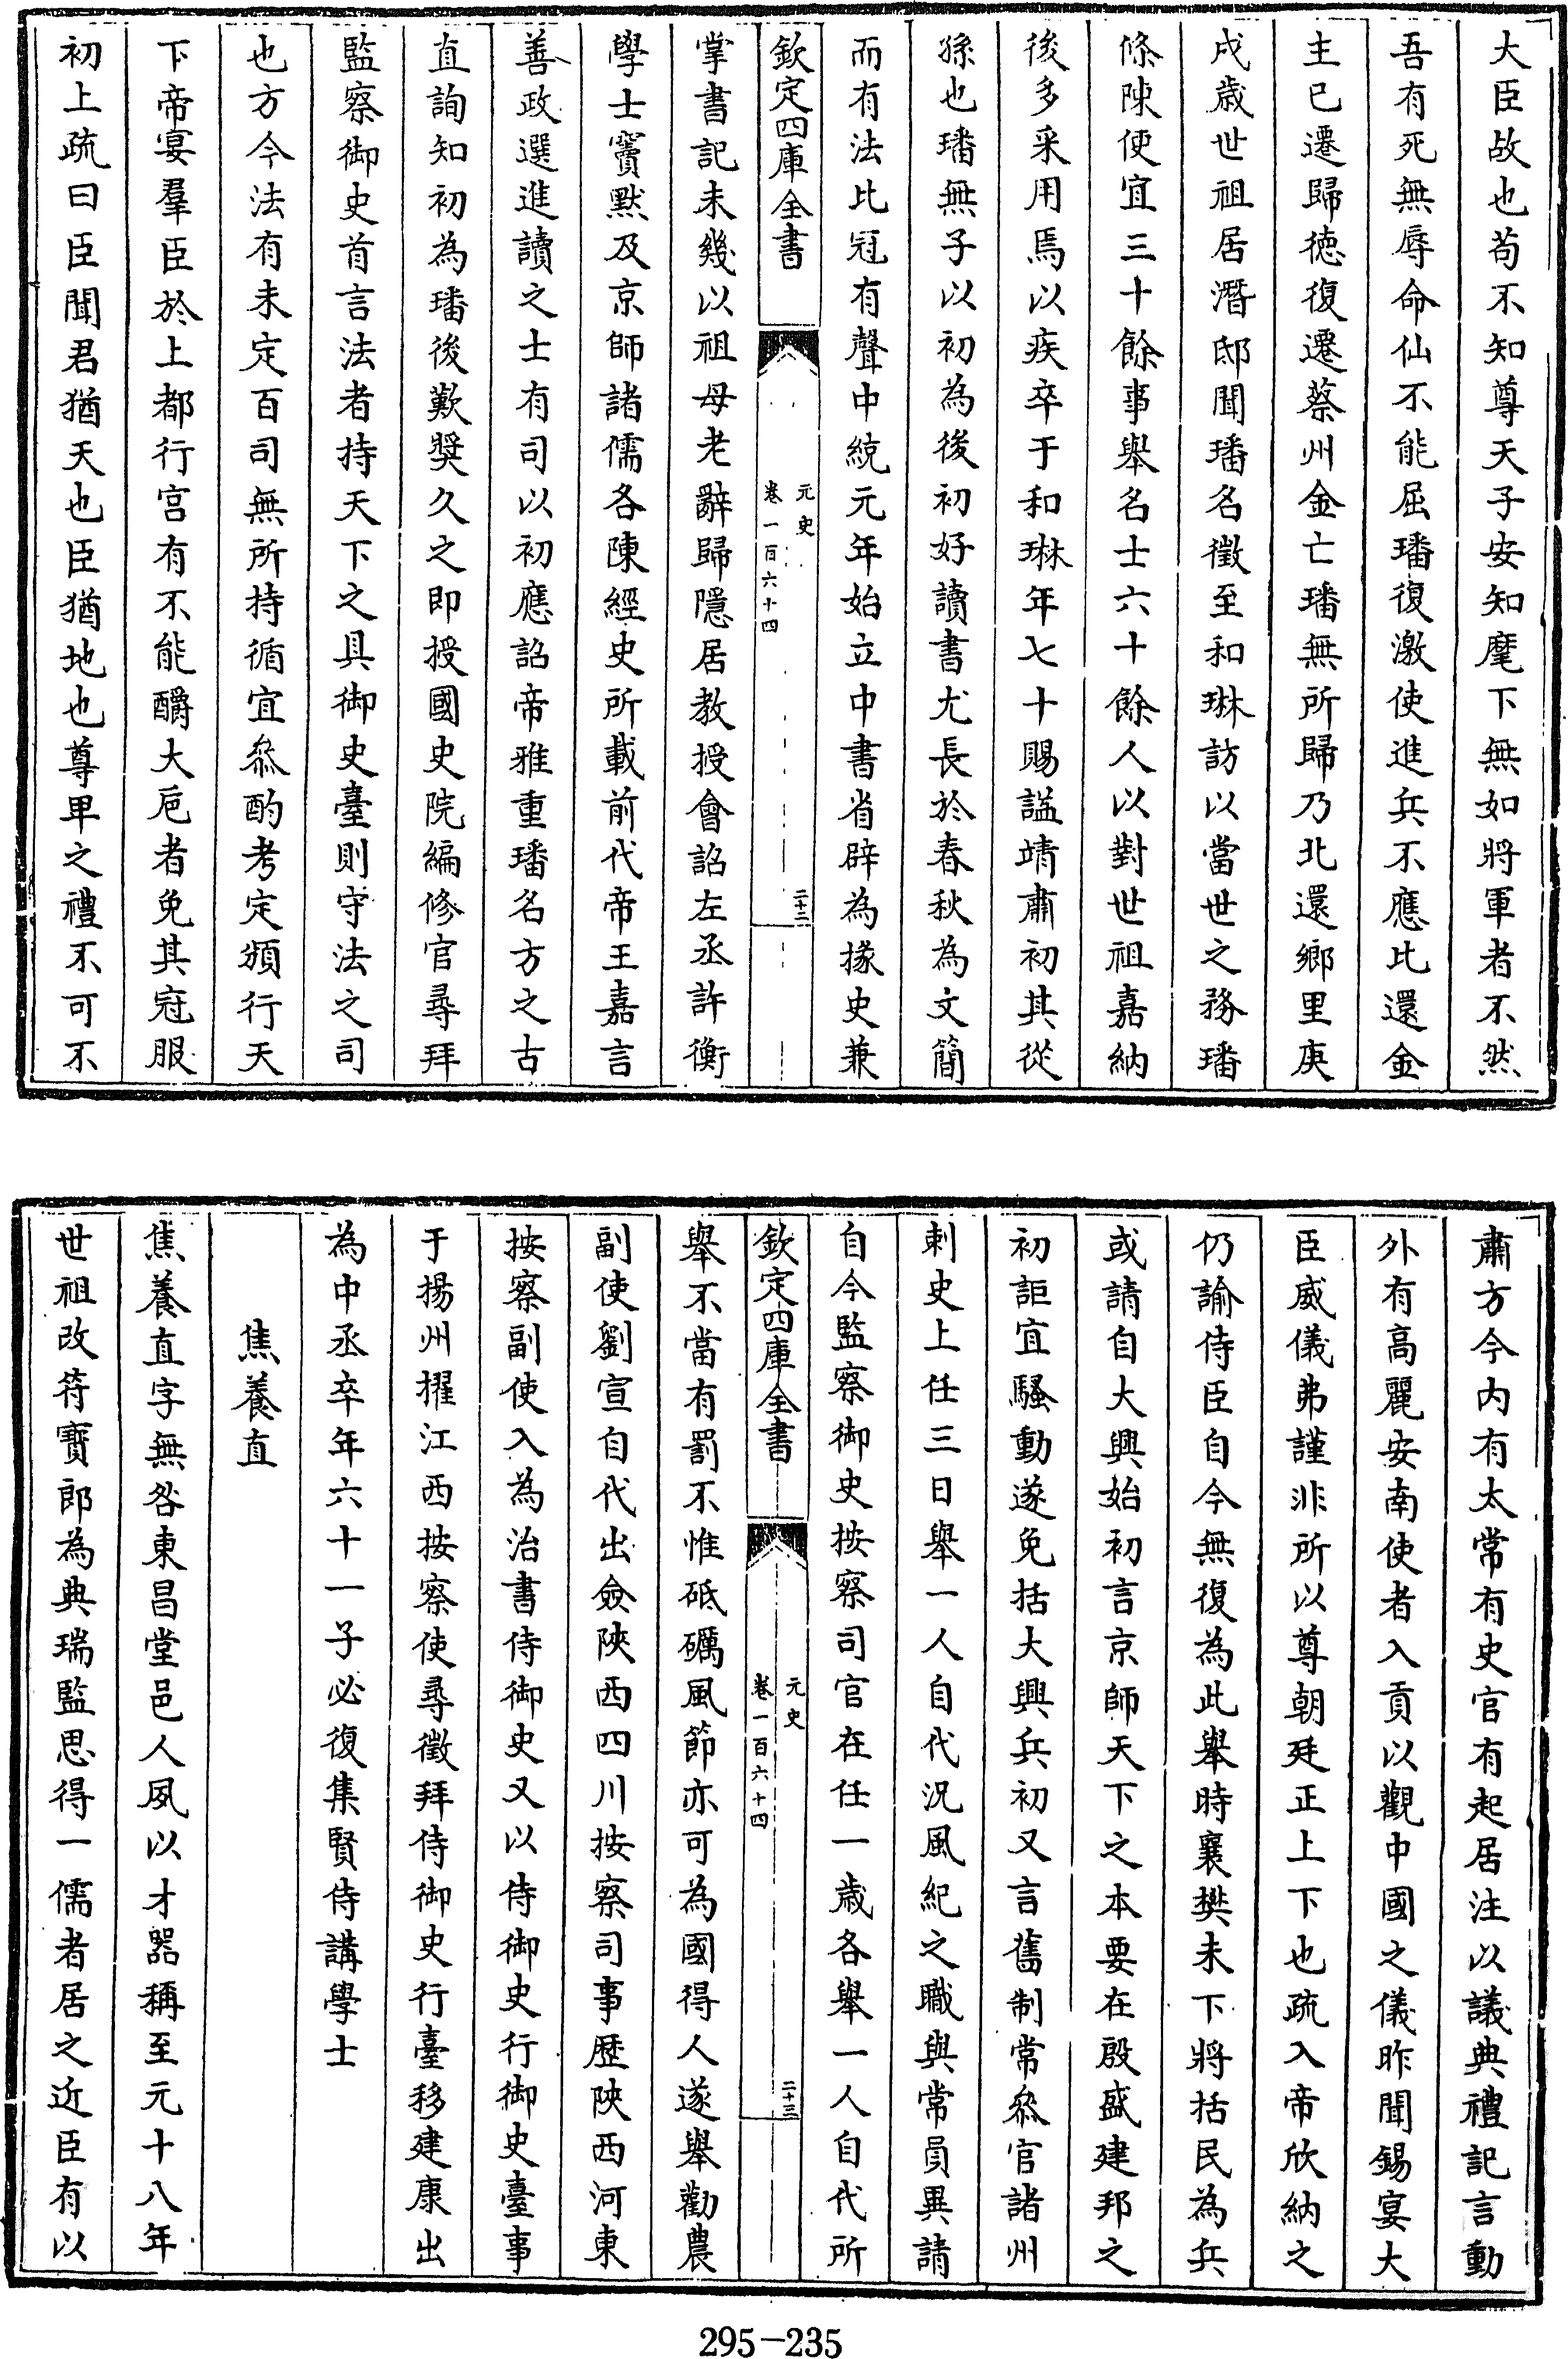 大臣故也苟不知尊天子安知麾下無如將軍者不然
吾有死無辱命仙不能屈璠復激使進兵不應比還金
主已遷歸徳復遷蔡州金亡璠無所歸乃北還鄉里庚
戌歲世祖居潛邸聞璠名徵至和琳訪以當世之務璠
條陳便宜三十餘事舉名士六十餘人以對世祖嘉納
後多采用焉以疾卒于和琳年七十賜謚靖肅初其從
孫也璠無子以初為後初好讀書尤長於春秋為文簡
而有法比冠有聲中統元年始立中書省辟為掾史兼
欽定四庫全書
元史
卷一百六十四
二十二
掌書記未幾以祖母老辭歸隱居教授會詔左丞許衡
學士竇黙及京師諸儒各陳經史所載前代帝王嘉言
善政選進讀之士有司以初應詔帝雅重璠名方之古
直詢知初為璠後歎奬久之即授國史院編修官尋拜
監察御史首言法者持天下之具御史臺則守法之司
也方今法有未定百司無所持循宜叅酌考定頒行天
下帝宴羣臣於上都行宫有不能釂大巵者免其冠服
初上疏曰臣聞君猶天也臣猶地也尊卑之禮不可不
肅方今内有太常有史官有起居注以議典禮記言動
外有高麗安南使者入貢以觀中國之儀昨聞錫宴大
臣威儀弗謹非所以尊朝廷正上下也疏入帝欣納之
仍諭侍臣自今無復為此舉時襄樊未下將括民為兵
或請自大興始初言京師天下之本要在殷盛建邦之
初詎宜騷動遂免括大興兵初又言舊制常叅官諸州
刺史上任三日舉一人自代况風紀之職與常員異請
自今監察御史按察司官在任一歲各舉一人自代所
欽定四庫全書
元史
卷一百六十四
二十三
舉不當有罰不惟砥礪風節亦可為國得人遂舉勸農
副使劉宣自代出僉陜西四川按察司事歷陜西河東
按察副使入為治書侍御史又以侍御史行御史臺事
于揚州擢江西按察使尋徵拜侍御史行臺移建康出
為中丞卒年六十一子必復集賢侍講學士
焦養直
焦養直字無咎東昌堂邑人夙以才器稱至元十八年
世祖改符寶郎為典瑞監思得一儒者居之近臣有以
295-235